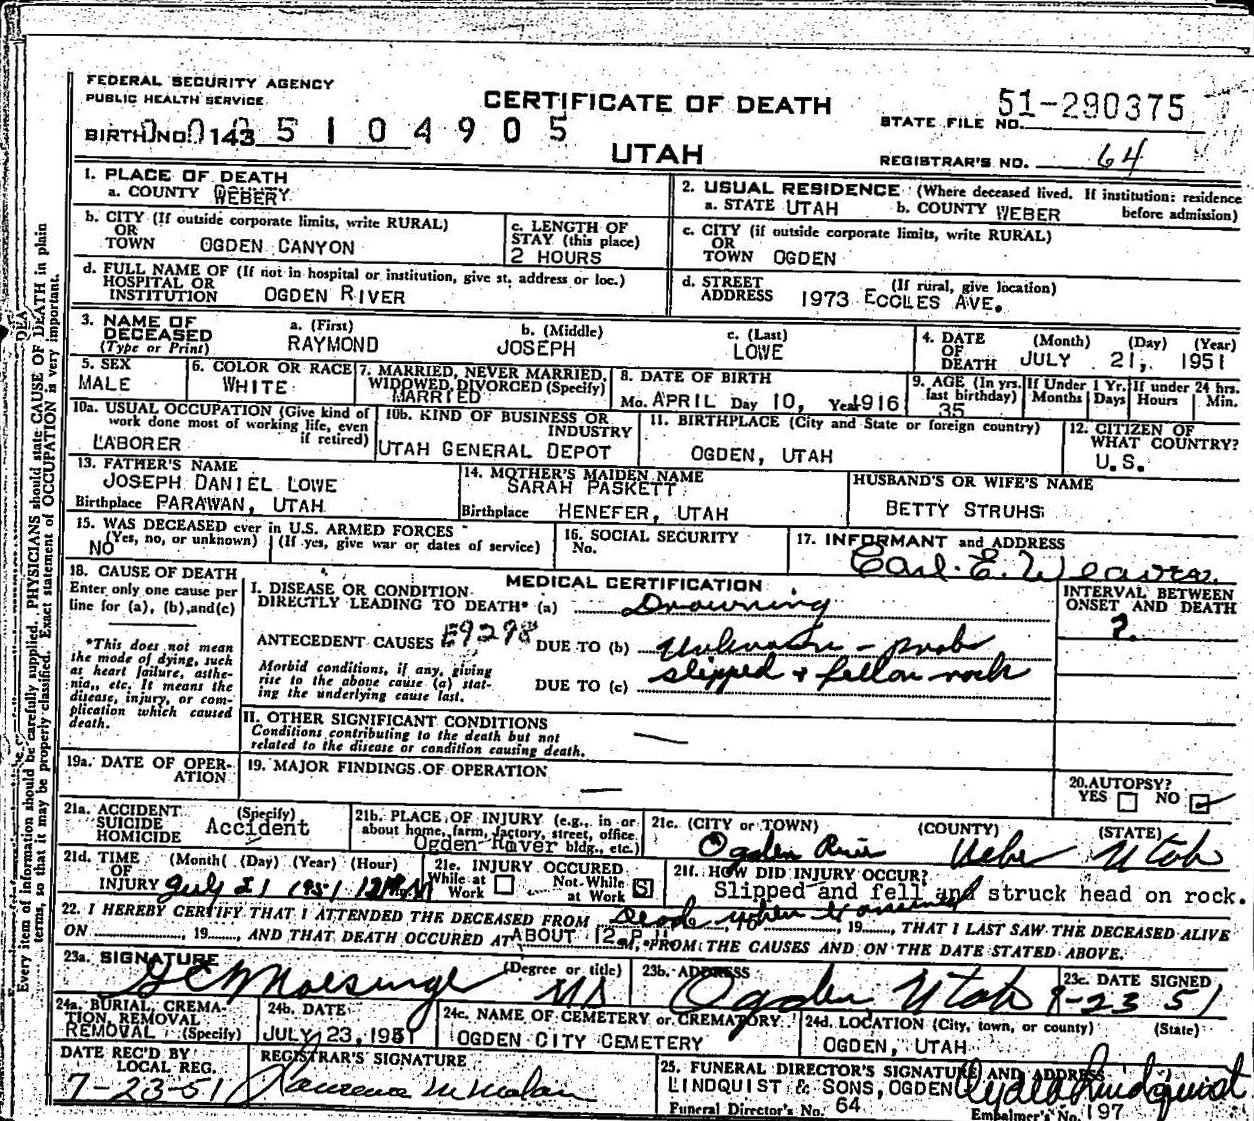 FEDERAL SECURITY AGENCY
PUBLIC HEALTH SERVICE
CERTIFICATE OF DEATH
UTAH
BIRTH NO. 143 5104905
STATE FILE NO. 51-290375
REGISTRAR'S NO. 64
Every item of information should be carefully supplied. PHYSICIANS should state CAUSE OF DEATH in plain
terms, so that it may be properly classified. Exact statement of OCCUPATION is very important.
1. PLACE OF DEATH
a. COUNTY WEBERY
2. USUAL RESIDENCE (Where deceased lived. If institution: residence
before admission)
a. STATE UTAH b. COUNTY WEBER
b. CITY (If outside corporate limits, write RURAL)
OR
TOWN OGDEN CANYON
c. LENGTH OF
STAY (this place)
2 HOURS
c. CITY (if outside corporate limits, write RURAL)
OR
TOWN OGDEN
d. FULL NAME OF (If not in hospital or institution, give st. address or loc.)
HOSPITAL OR
INSTITUTION OGDEN RIVER
d. STREET (If rural, give location)
ADDRESS 1973 ECCLES AVE.
3. NAME OF
DECEASED
(Type or Print)
a. (First) b. (Middle) c. (Last)
RAYMOND JOSEPH LOWE
4. DATE (Month) (Day) (Year)
OF
DEATH JULY 21, 1951
5. SEX
MALE
6. COLOR OR RACE
WHITE
7. MARRIED, NEVER MARRIED,
WIDOWED, DIVORCED (Specify)
MARRIED
8. DATE OF BIRTH
Mo. APRIL Day 10, Year 1916
9. AGE (In yrs. last birthday)
35
If Under 1 Yr.
Months Days
If under 24 hrs.
Hours Min.
10a. USUAL OCCUPATION (Give kind of
work done most of working life, even
if retired)
LABORER
10b. KIND OF BUSINESS OR
INDUSTRY
UTAH GENERAL DEPOT
11. BIRTHPLACE (City and State or foreign country)
OGDEN, UTAH
12. CITIZEN OF
WHAT COUNTRY?
U.S.
13. FATHER'S NAME
JOSEPH DANIEL LOWE
Birthplace PARAWAN, UTAH
14. MOTHER'S MAIDEN NAME
SARAH PASKETT
Birthplace HENEFER, UTAH
HUSBAND'S OR WIFE'S NAME
BETTY STRUHS
15. WAS DECEASED ever in U.S. ARMED FORCES
(Yes, no, or unknown) (If yes, give war or dates of service)
NO
16. SOCIAL SECURITY
No.
17. INFORMANT and ADDRESS
Earl E. Weaver
18. CAUSE OF DEATH
Enter only one cause per
line for (a), (b), and (c)
*This does not mean
the mode of dying, such
as heart failure, asthe-
nia, etc. It means the
disease, injury, or com-
plication which caused
death.
MEDICAL CERTIFICATION
I. DISEASE OR CONDITION
DIRECTLY LEADING TO DEATH* (a) Drowning
ANTECEDENT CAUSES E9298 DUE TO (b) Unknown - prob
Morbid conditions, if any, giving
rise to the above cause (a) stat-
ing the underlying cause last.
DUE TO (c) slipped & fell on rock
INTERVAL BETWEEN
ONSET AND DEATH
?
II. OTHER SIGNIFICANT CONDITIONS
Conditions contributing to the death but not
related to the disease or condition causing death.
19a. DATE OF OPER-
ATION
19. MAJOR FINDINGS OF OPERATION
20. AUTOPSY?
YES NO
21a. ACCIDENT (Specify)
SUICIDE
HOMICIDE Accident
21b. PLACE OF INJURY (e.g., in or
about home, farm, factory, street, office
bldg., etc.)
Ogden River
21c. (CITY or TOWN) (COUNTY) (STATE)
Ogden River Weber Utah
21d. TIME (Month) (Day) (Year) (Hour)
OF
INJURY July 21 1951 12 PM
21e. INJURY OCCURED
While at Work Not While at Work
21f. HOW DID INJURY OCCUR?
Slipped and fell and struck head on rock.
22. I HEREBY CERTIFY THAT I ATTENDED THE DECEASED FROM Dead when examined, 19, THAT I LAST SAW THE DECEASED ALIVE
ON , 19, AND THAT DEATH OCCURED AT ABOUT 12 P.M. FROM THE CAUSES AND ON THE DATE STATED ABOVE.
23a. SIGNATURE (Degree or title)
MD
23b. ADDRESS
Ogden, Utah
23c. DATE SIGNED
23 51
24a. BURIAL, CREMA-
TION, REMOVAL
(Specify)
REMOVAL
24b. DATE
JULY 23, 1951
24c. NAME OF CEMETERY or CREMATORY
OGDEN CITY CEMETERY
24d. LOCATION (City, town, or county) (State)
OGDEN, UTAH
DATE REC'D BY
LOCAL REG.
7-23-51
REGISTRAR'S SIGNATURE
25. FUNERAL DIRECTOR'S SIGNATURE AND ADDRESS
LINDQUIST & SONS, OGDEN
Funeral Director's No. 64
Embalmer's No. 197